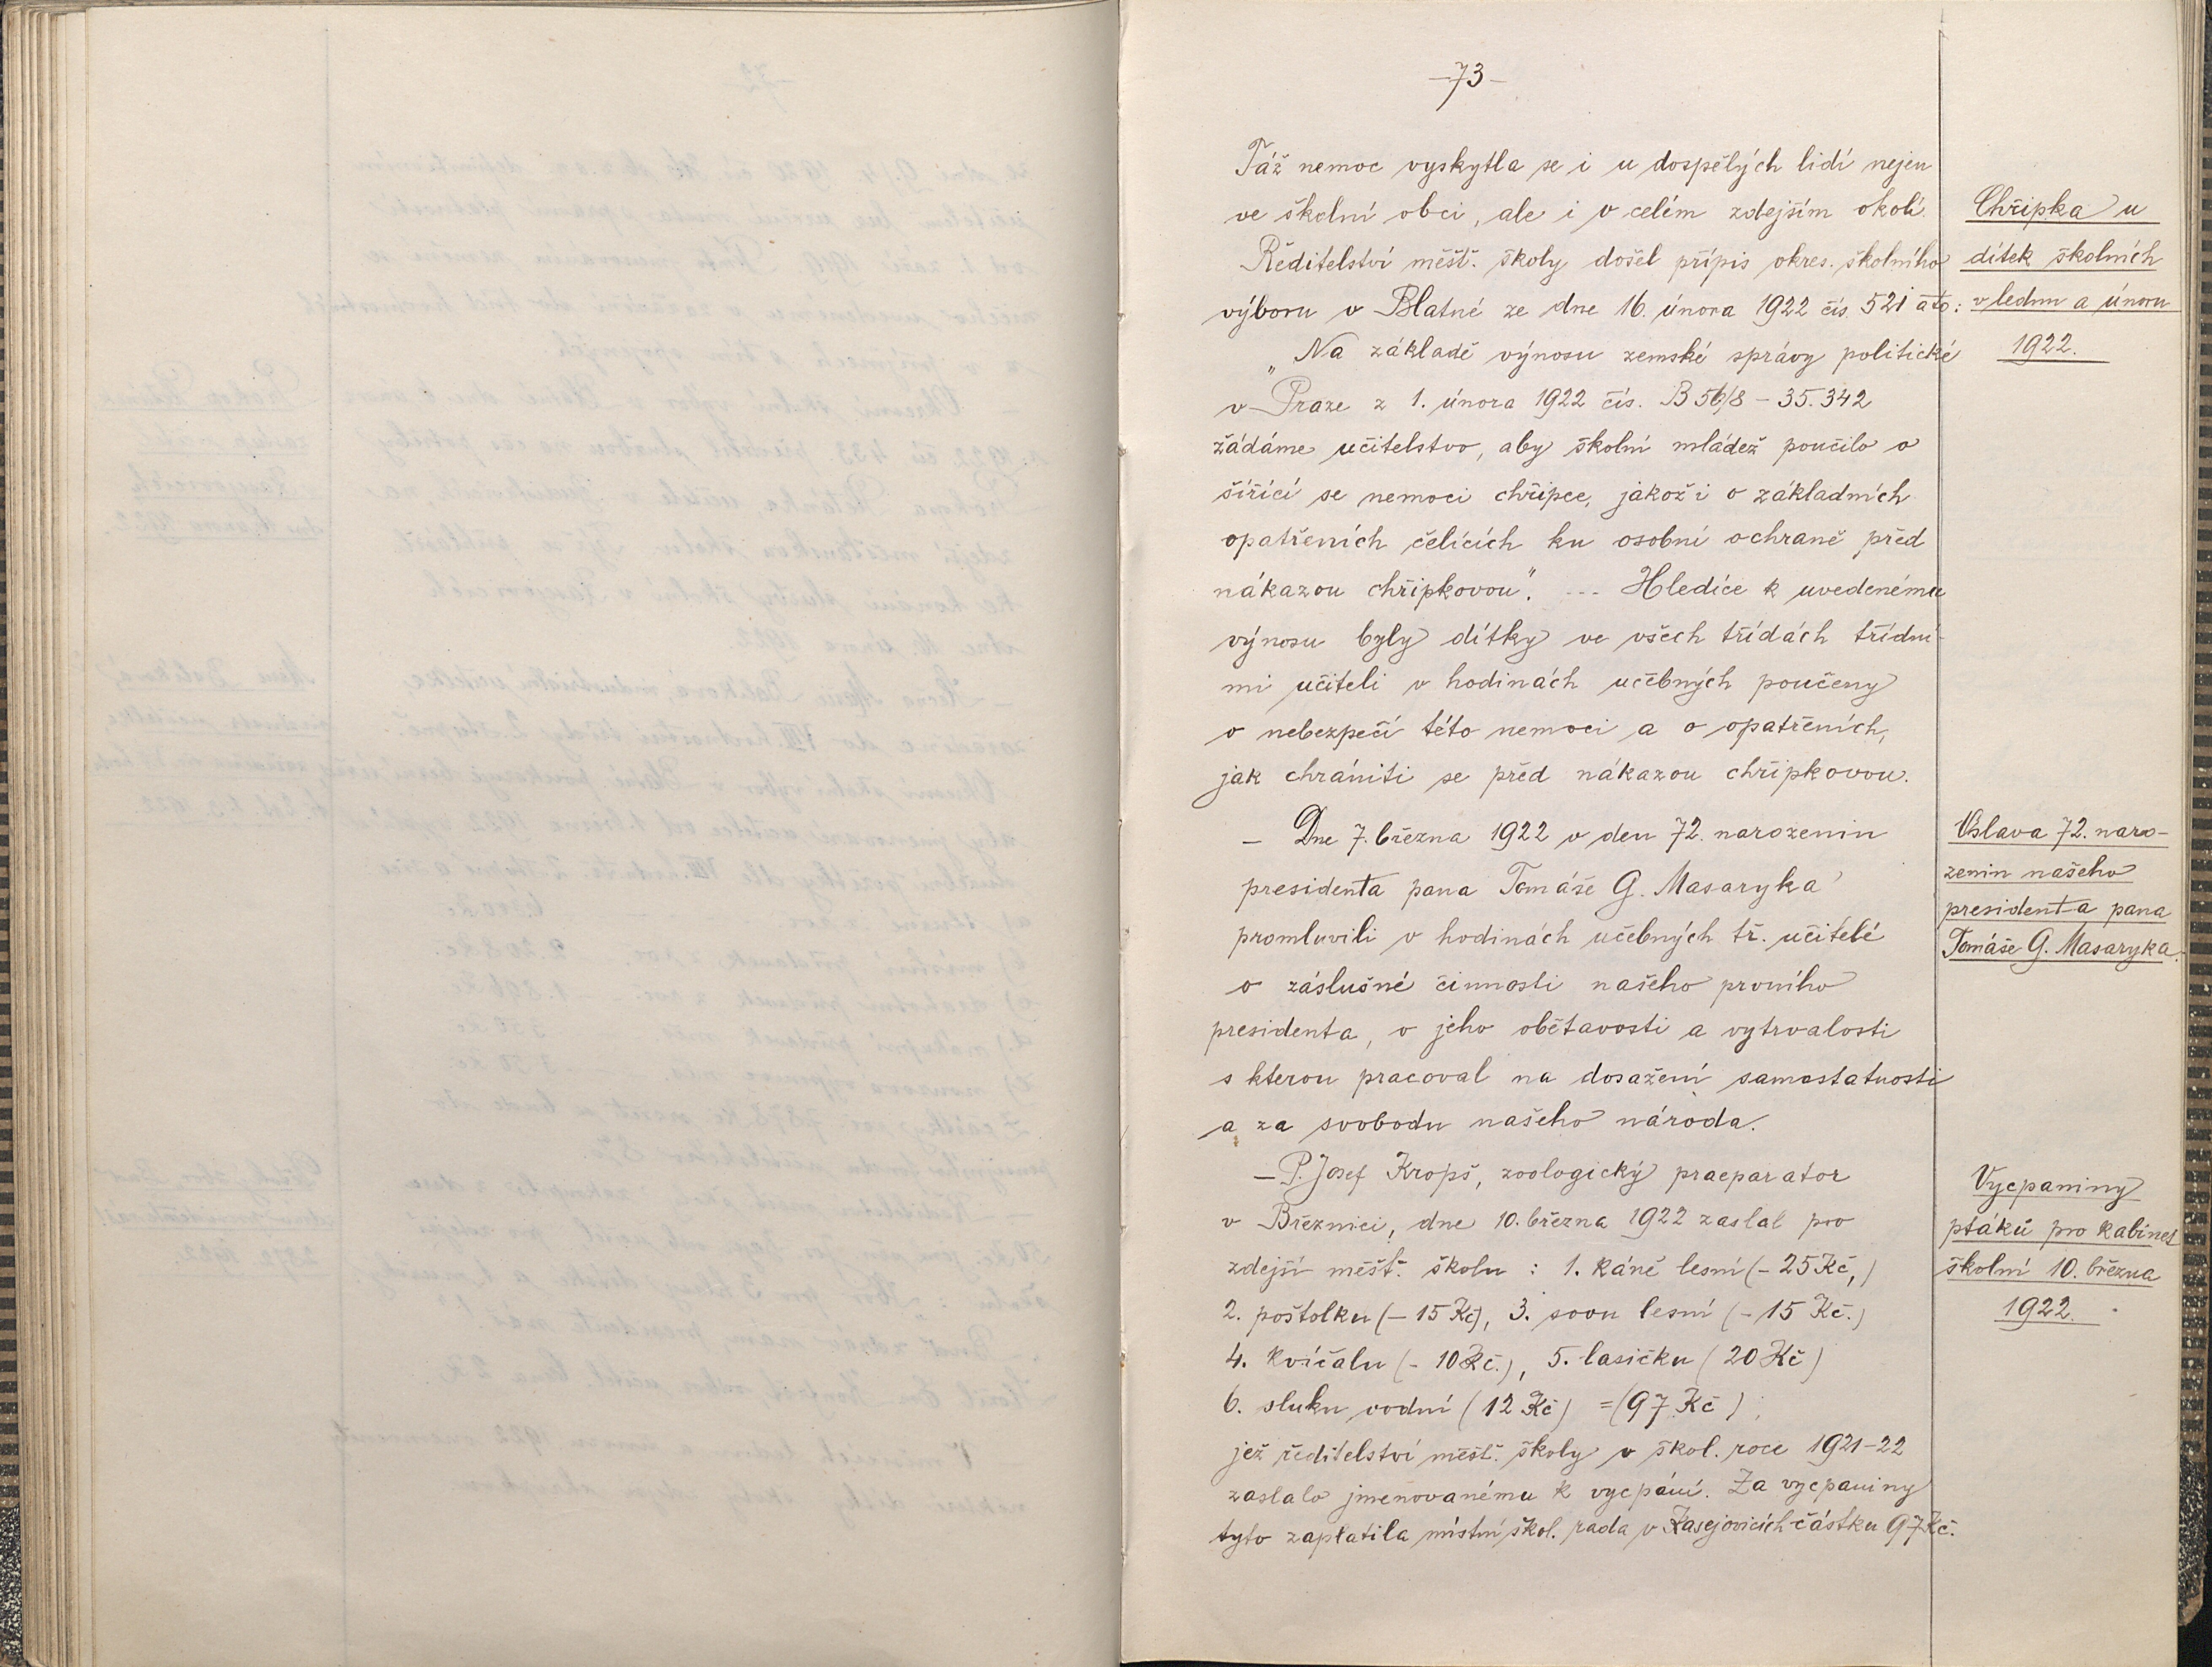 -73-
Táž nemoc vyskytla se i u dospělých lidí nejen
ve školní obci, ale i v celém zdejším okolí.
Ředitelství měšť. školy došel přípis okres. školního
výboru v Blatné ze dne 16. února 1922 čís. 521 ato:
„Na základě výnosu zemské správy politické
v Praze z 1. února 1922 čís. B 56/8 - 35.342
žádáme učitelstvo, aby školní mládež poučilo o
šířící se nemoci chřipce, jakož i o základních
opatřeních čelících ku osobní ochraně před
nákazou chřipkovou". --- Hledíce k uvedenému
výnosu byly dítky ve všech třídách třídní-
mi učiteli v hodinách učebných poučeny
o nebezpečí této nemoci a o opatřeních,
jak chrániti se před nákazou chřipkovou.
- Dne 7. března 1922 v den 72. narozenin
presidenta pana Tomáše G. Masaryka
promluvili v hodinách učebných tř. učitelé
o záslušné činnosti našeho prvního
presidenta, o jeho obětavosti a vytrvalosti
s kterou pracoval na dosažení samostatnosti
a za svobodu našeho národa.
- P. Josef Kropš, zoologický praeparator
v Březnici, dne 10. března 1922 zaslal pro
zdejší měšť. školu : 1. káně lesní (- 25 Kč,)
2. poštolku (- 15 Kč), 3. sovu lesní (- 15 Kč.)
4. kvíčalu (- 10 Kč.), 5. lasičku (20 Kč)
6. sluku vodní (12 Kč) = (97 Kč)
jež ředitelství měšť. školy v škol. roce 1921-22
zaslalo jmenovanému k vycpání. Za vycpaniny
tyto zaplatila místní škol. rada v Kasejovicích částku 97 Kč.
Chřipka u
dítek školních
v lednu a únoru
1922.
Oslava 72. naro-
zenin našeho
presidenta pana
Tomáše G. Masaryka.
Vycpaniny
ptáků pro kabinet
školní 10. března
1922.